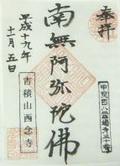 奉拝
甲斐百八霊場
南無阿弥陀佛
平成十九年
十一月五日
吉積山西念寺